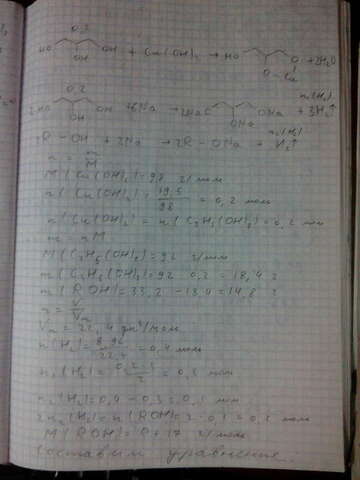 0,3
HO OH OH + Cu(OH)₂ → HO O O Cu + 2H₂O
0,2 n₁(H₂)
2HO OH OH + 6Na → 2NaO ONa ONa + 3H₂↑
n₂(H₂)
2R-OH + 2Na → 2R-ONa + H₂↑
n = m/M
M(Cu(OH)₂) = 98 г/моль
n(Cu(OH)₂) = 19,6/98 = 0,2 моль
n(Cu(OH)₂) = n(C₃H₅(OH)₃) = 0,2 моль
m = nM
M(C₃H₅(OH)₃) = 92 г/моль
m(C₃H₅(OH)₃) = 92 · 0,2 = 18,4 г
m(ROH) = 33,2 - 18,4 = 14,8 г
n = V/Vm
Vm = 22,4 дм³/моль
n(H₂) = 8,96/22,4 = 0,4 моль
n₁(H₂) = 0,2·3/2 = 0,3 моль
n₂(H₂) = 0,4 - 0,3 = 0,1 моль
2n₂(H₂) = n(ROH) = 2 · 0,1 = 0,2 моль
M(ROH) = R + 17 г/моль
Составим уравнение